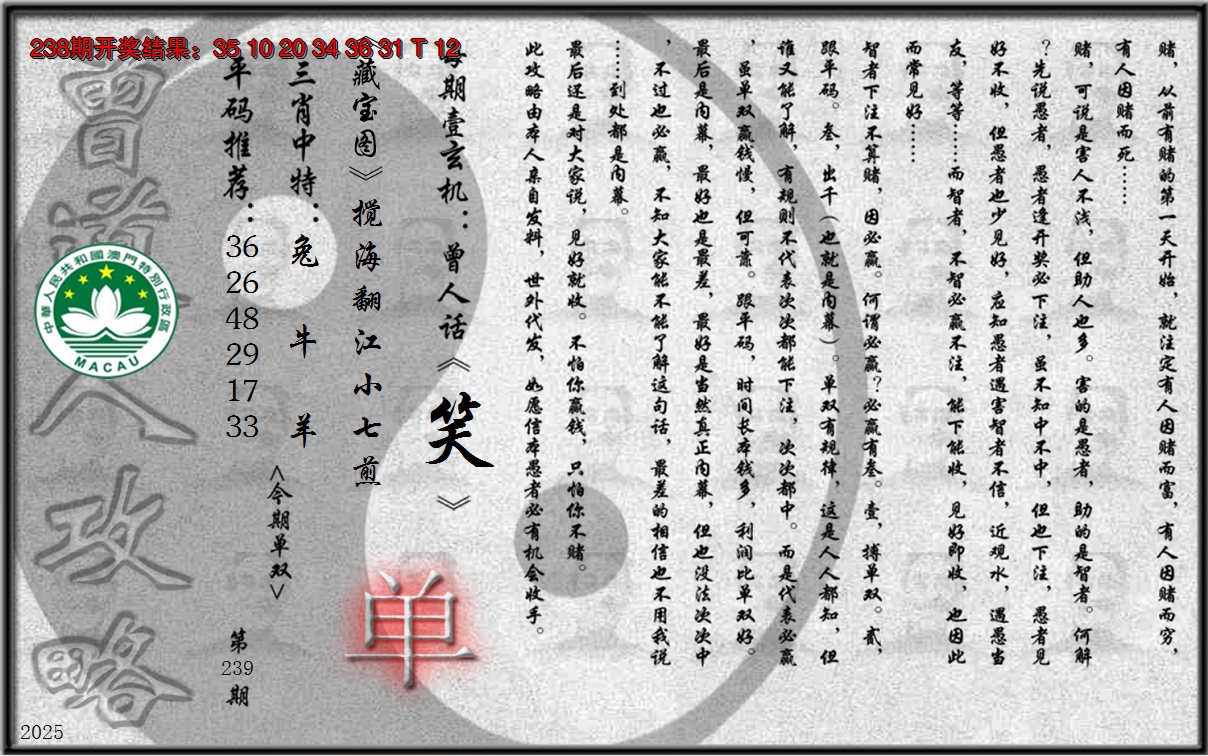 238期开奖结果：35 10 20 34 36 31 T 12
赌，从前有赌的第一天开始，就注定有人因赌而富，有人因赌而穷，
有人因赌而死……
赌，可说是害人不浅，但助人也多。害的是愚者，助的是智者。何解
？先说愚者，愚者逢开奖必下注，虽不知中不中，但也下注，愚者见
好不收，但愚者也少见好，应知愚者遇害智者不信，近观水，遇愚当
友，等等……而智者，不智必赢不注，能下能收，见好即收，也因此
而常见好……
智者下注不算赌，因必赢。何谓必赢？必赢有叁。壹，搏单双。贰，
跟平码。叁，出千（也就是内幕）。单双有规律，这是人人都知，但
谁又能了解，有规则不代表次次都能下注，次次都中。而是代表必赢
，虽单双赢钱慢，但可靠。跟平码，时间长本钱多，利润比单双好。
最后是内幕，最好也是最差，最好是当然真正内幕，但也没法次次中
，不过也必赢，不知大家能不能了解这句话，最差的相信也不用我说
……到处都是内幕。
最后还是对大家说，见好就收。不怕你赢钱，只怕你不赌。
此攻略由本人亲自发料，世外代发，如愿信本愚者必有机会收手。
每期壹玄机：曾人话《笑》
《藏宝图》搅海翻江小七煎
单
三肖中特：兔 牛 羊
<今期单双>
平码推荐：
36
26
48
29
17
33
第
239
期
曾道人攻略
中華人民共和國澳門特別行政區
MACAU
2025